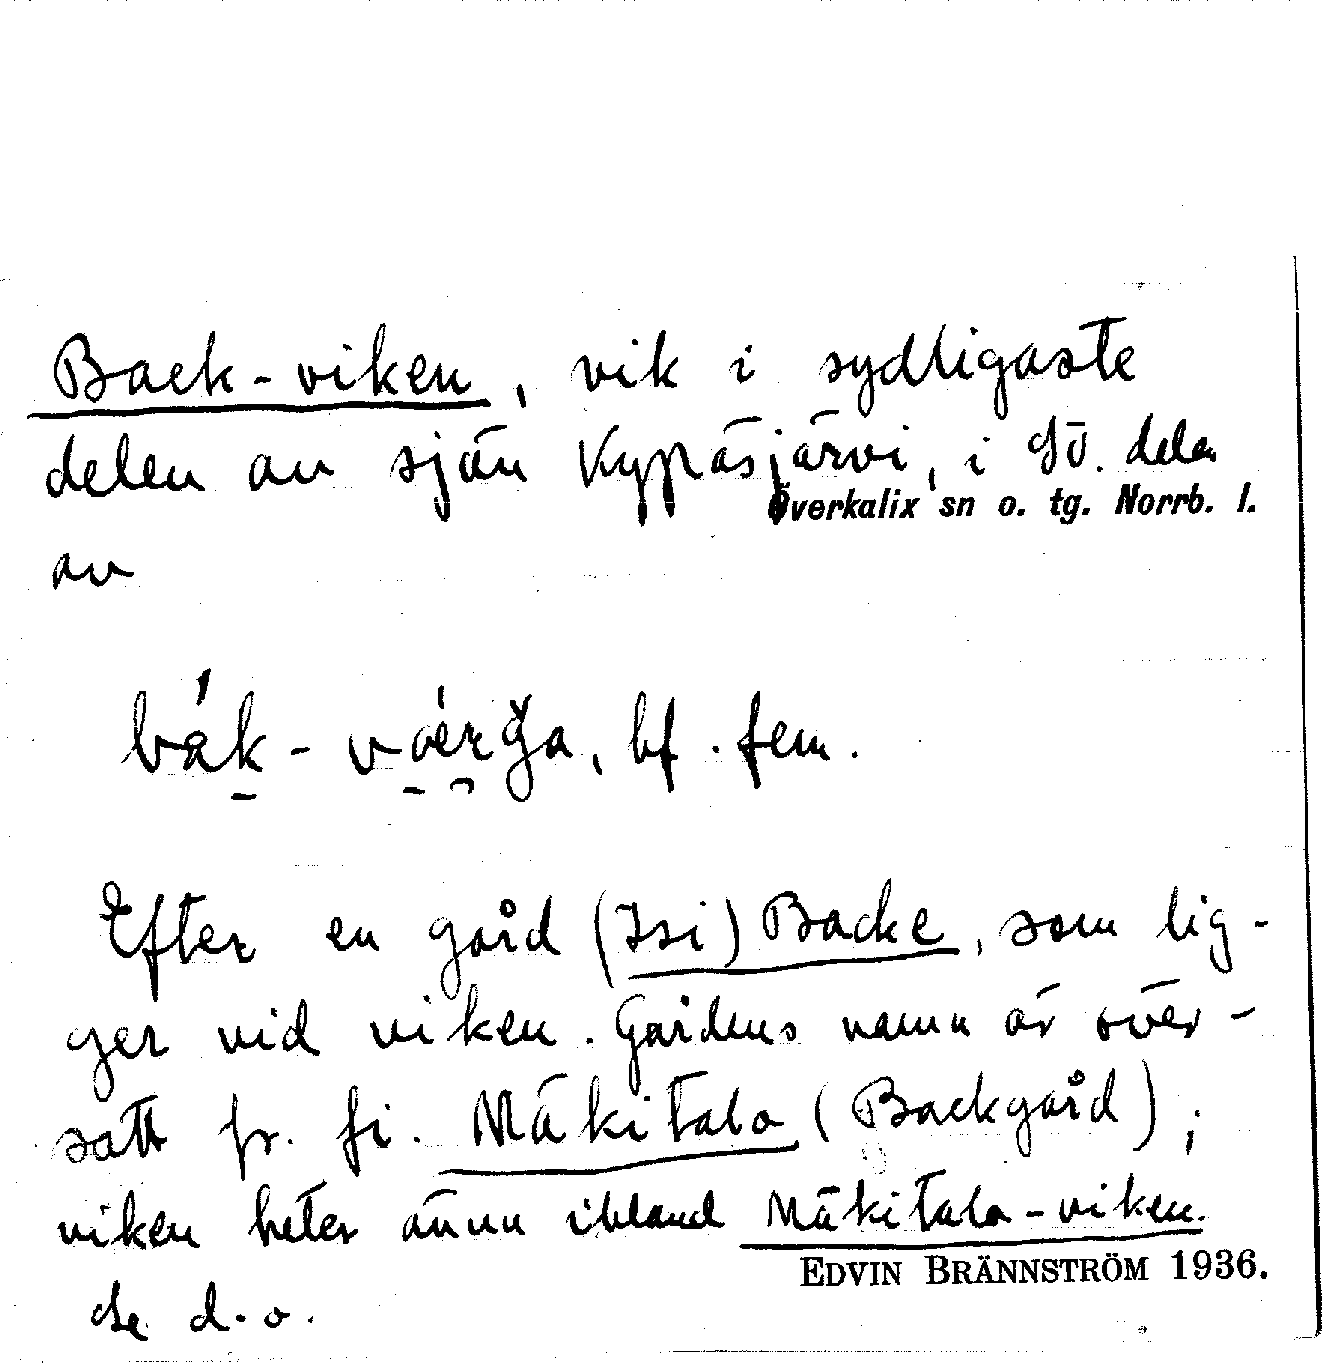 Back-viken, vik i sydligaste
delen av sjön Kypäsjärvi, i SÖ. delen
Överkalix sn o. tg. Norrb. l.
av
bf. fem.
Efter en gård (Isi) Backe, som lig-
ger vid viken. Gårdens namn är över-
satt fr. fi. Mäkitalo (Backgård);
viken heter ännu ibland Mäkitalo-viken.
EDVIN BRÄNNSTRÖM 1936.
Se d.o.